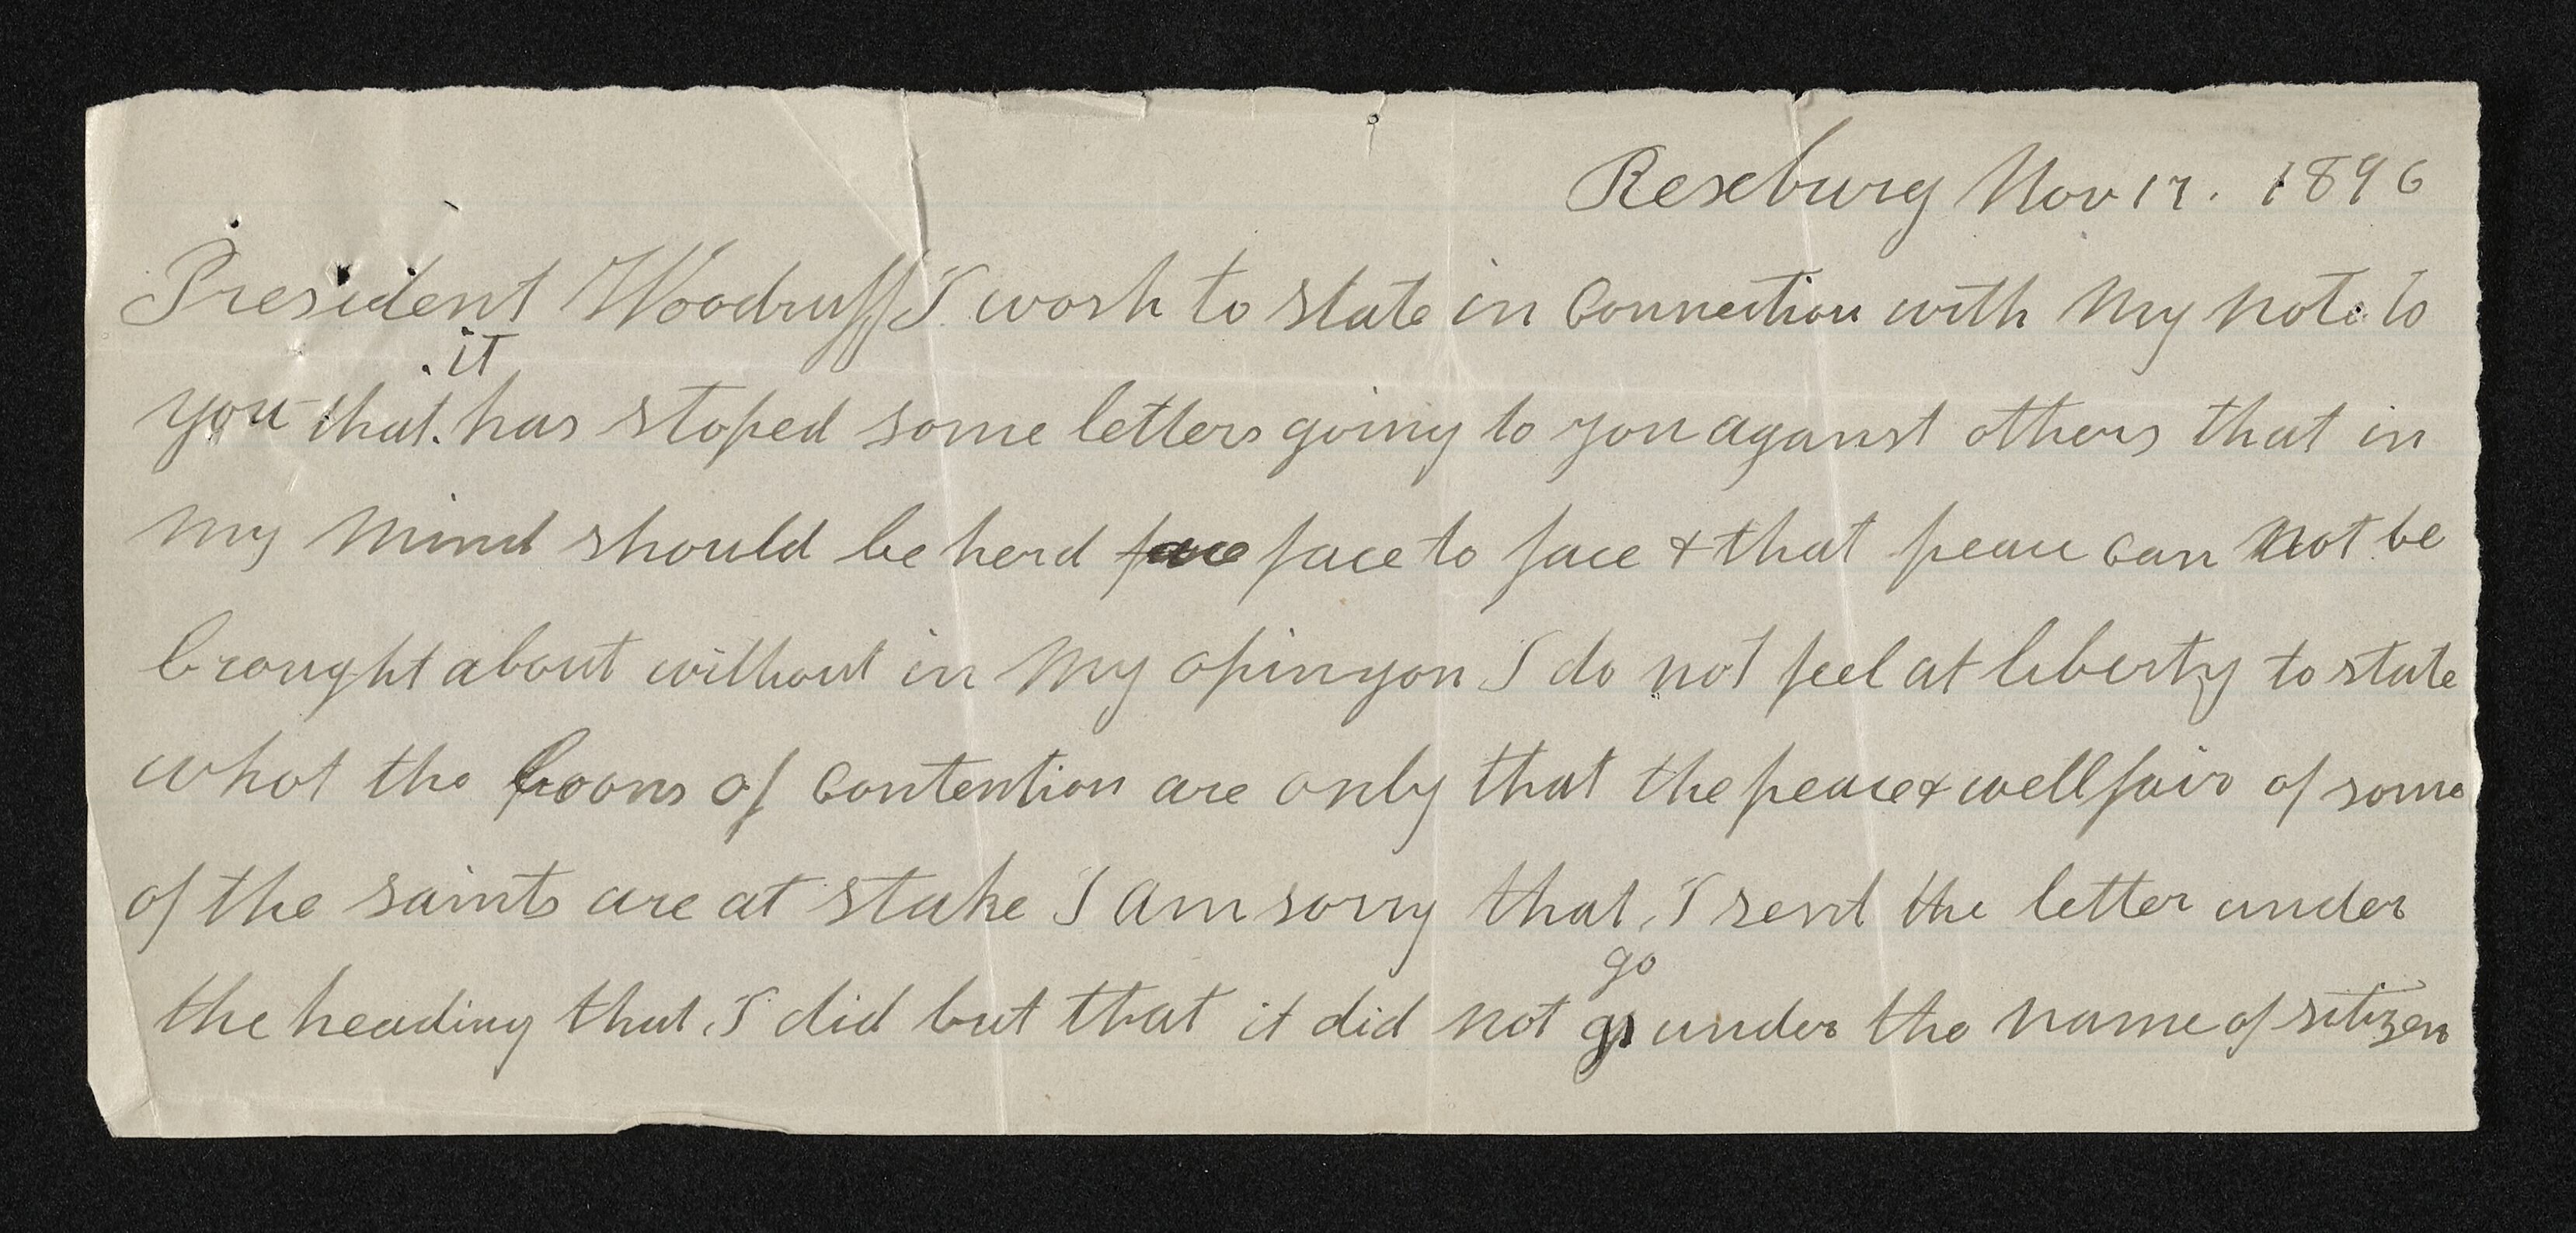 Rexeburg Nov 17. 1896
President Woodruff I wosh to state in Connection with My note to
it
you that has stoped some letters going to you aganst others that in
my mind should be herd face face to face & that peace can not be
brought about without in My opinyon I do not feel at liberty to state
whot the boons of contention are only that the peace & wellfair of some
of the saints are at stake I am sorry that I send the letter under
go
the heading that I did but that it did not under the name of sitizen